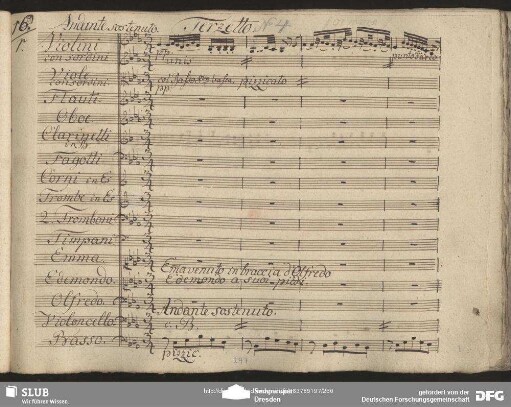 16.
Andante sostenuto. Terzetto. N 4
1.
Violini
con sordini
Viole
con sordini
pizzicato
pp
Flauti
Oboe
Clarinetti
in B
Fagotti
Corni in Es
Trombe in Es
2. Tromboni
Timpani
Emma.
Edemondo.
Olfredo.
Violoncello
Basso.
Emma svenuto in braccia d'Olfredo
Edemondo a suoi piedi.
Andante sostenuto.
c. B.
pizzic.
SLUB
Wir führen Wissen.
Dresden
gefördert von der
Deutschen Forschungsgemeinschaft
DFG